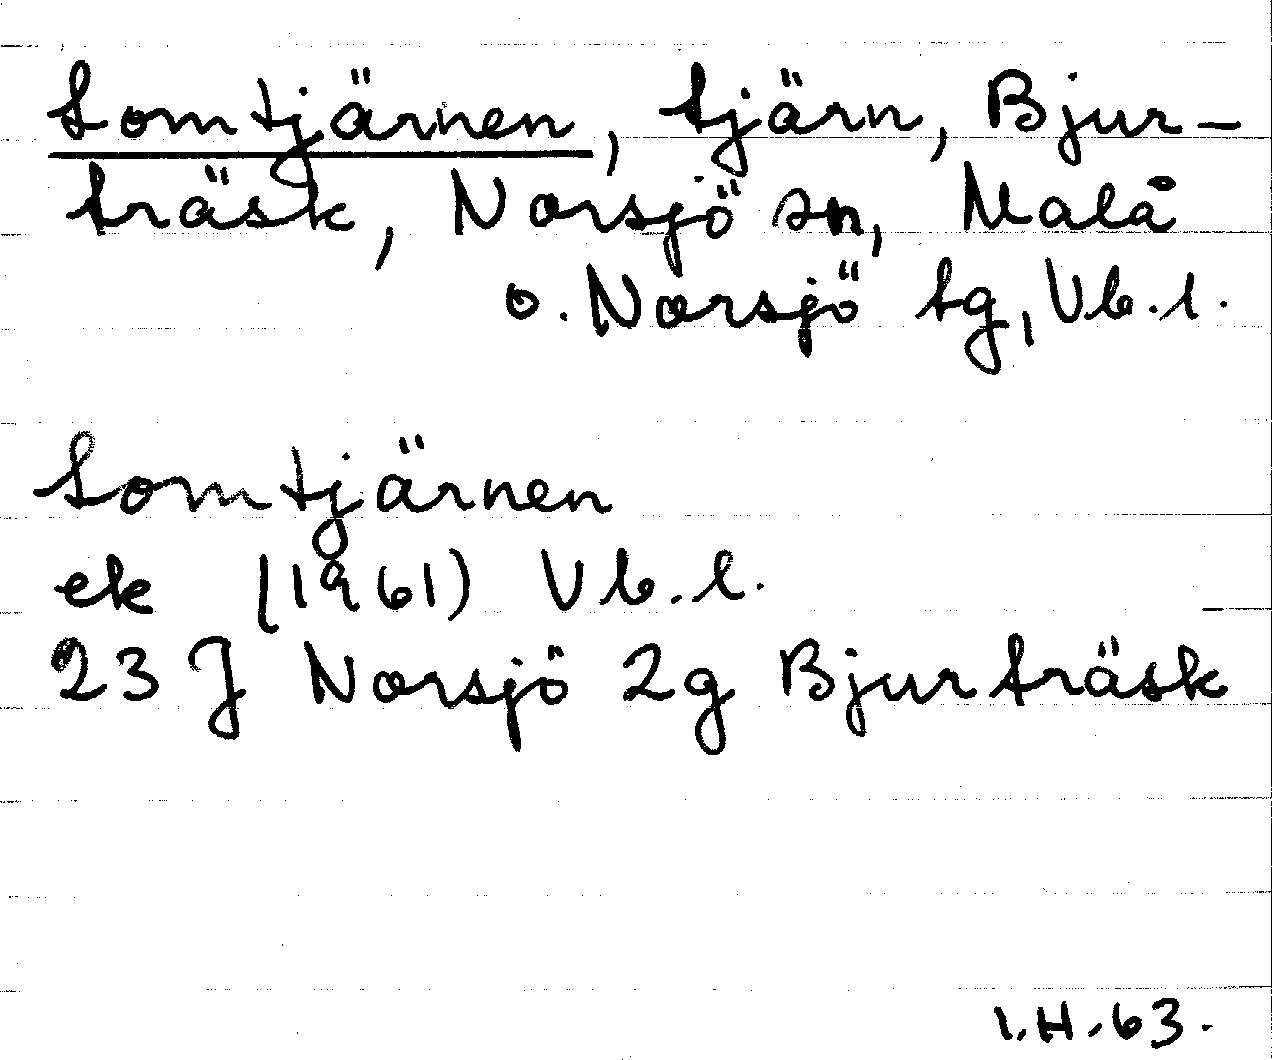 Lomtjärnen, tjärn, Bjur-
träsk, Norsjö sn, Malå
o. Norsjö tg, Vb.l.
Lomtjärnen
ek (1961) Vb.l.
23 J Norsjö 2g Bjurträsk
I.H.63.